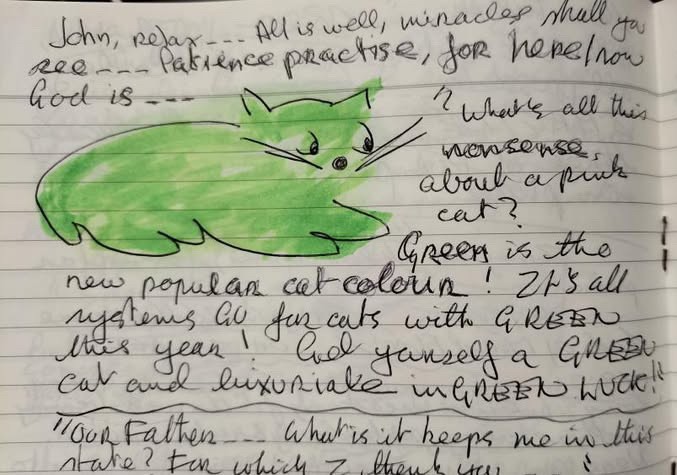 John, relax --- All is well, miracles shall you
see --- Patience practise, for here/now
God is ---
"What's all this
nonsense,
about a pink
cat?
Green is the
new popular cat colour! It's all
systems GO for cats with GREEN
this year! Get yourself a GREEN
cat and luxuriate in GREEN LUCK!!"
"Our Father --- What is it keeps me in this
state? For which I thank you